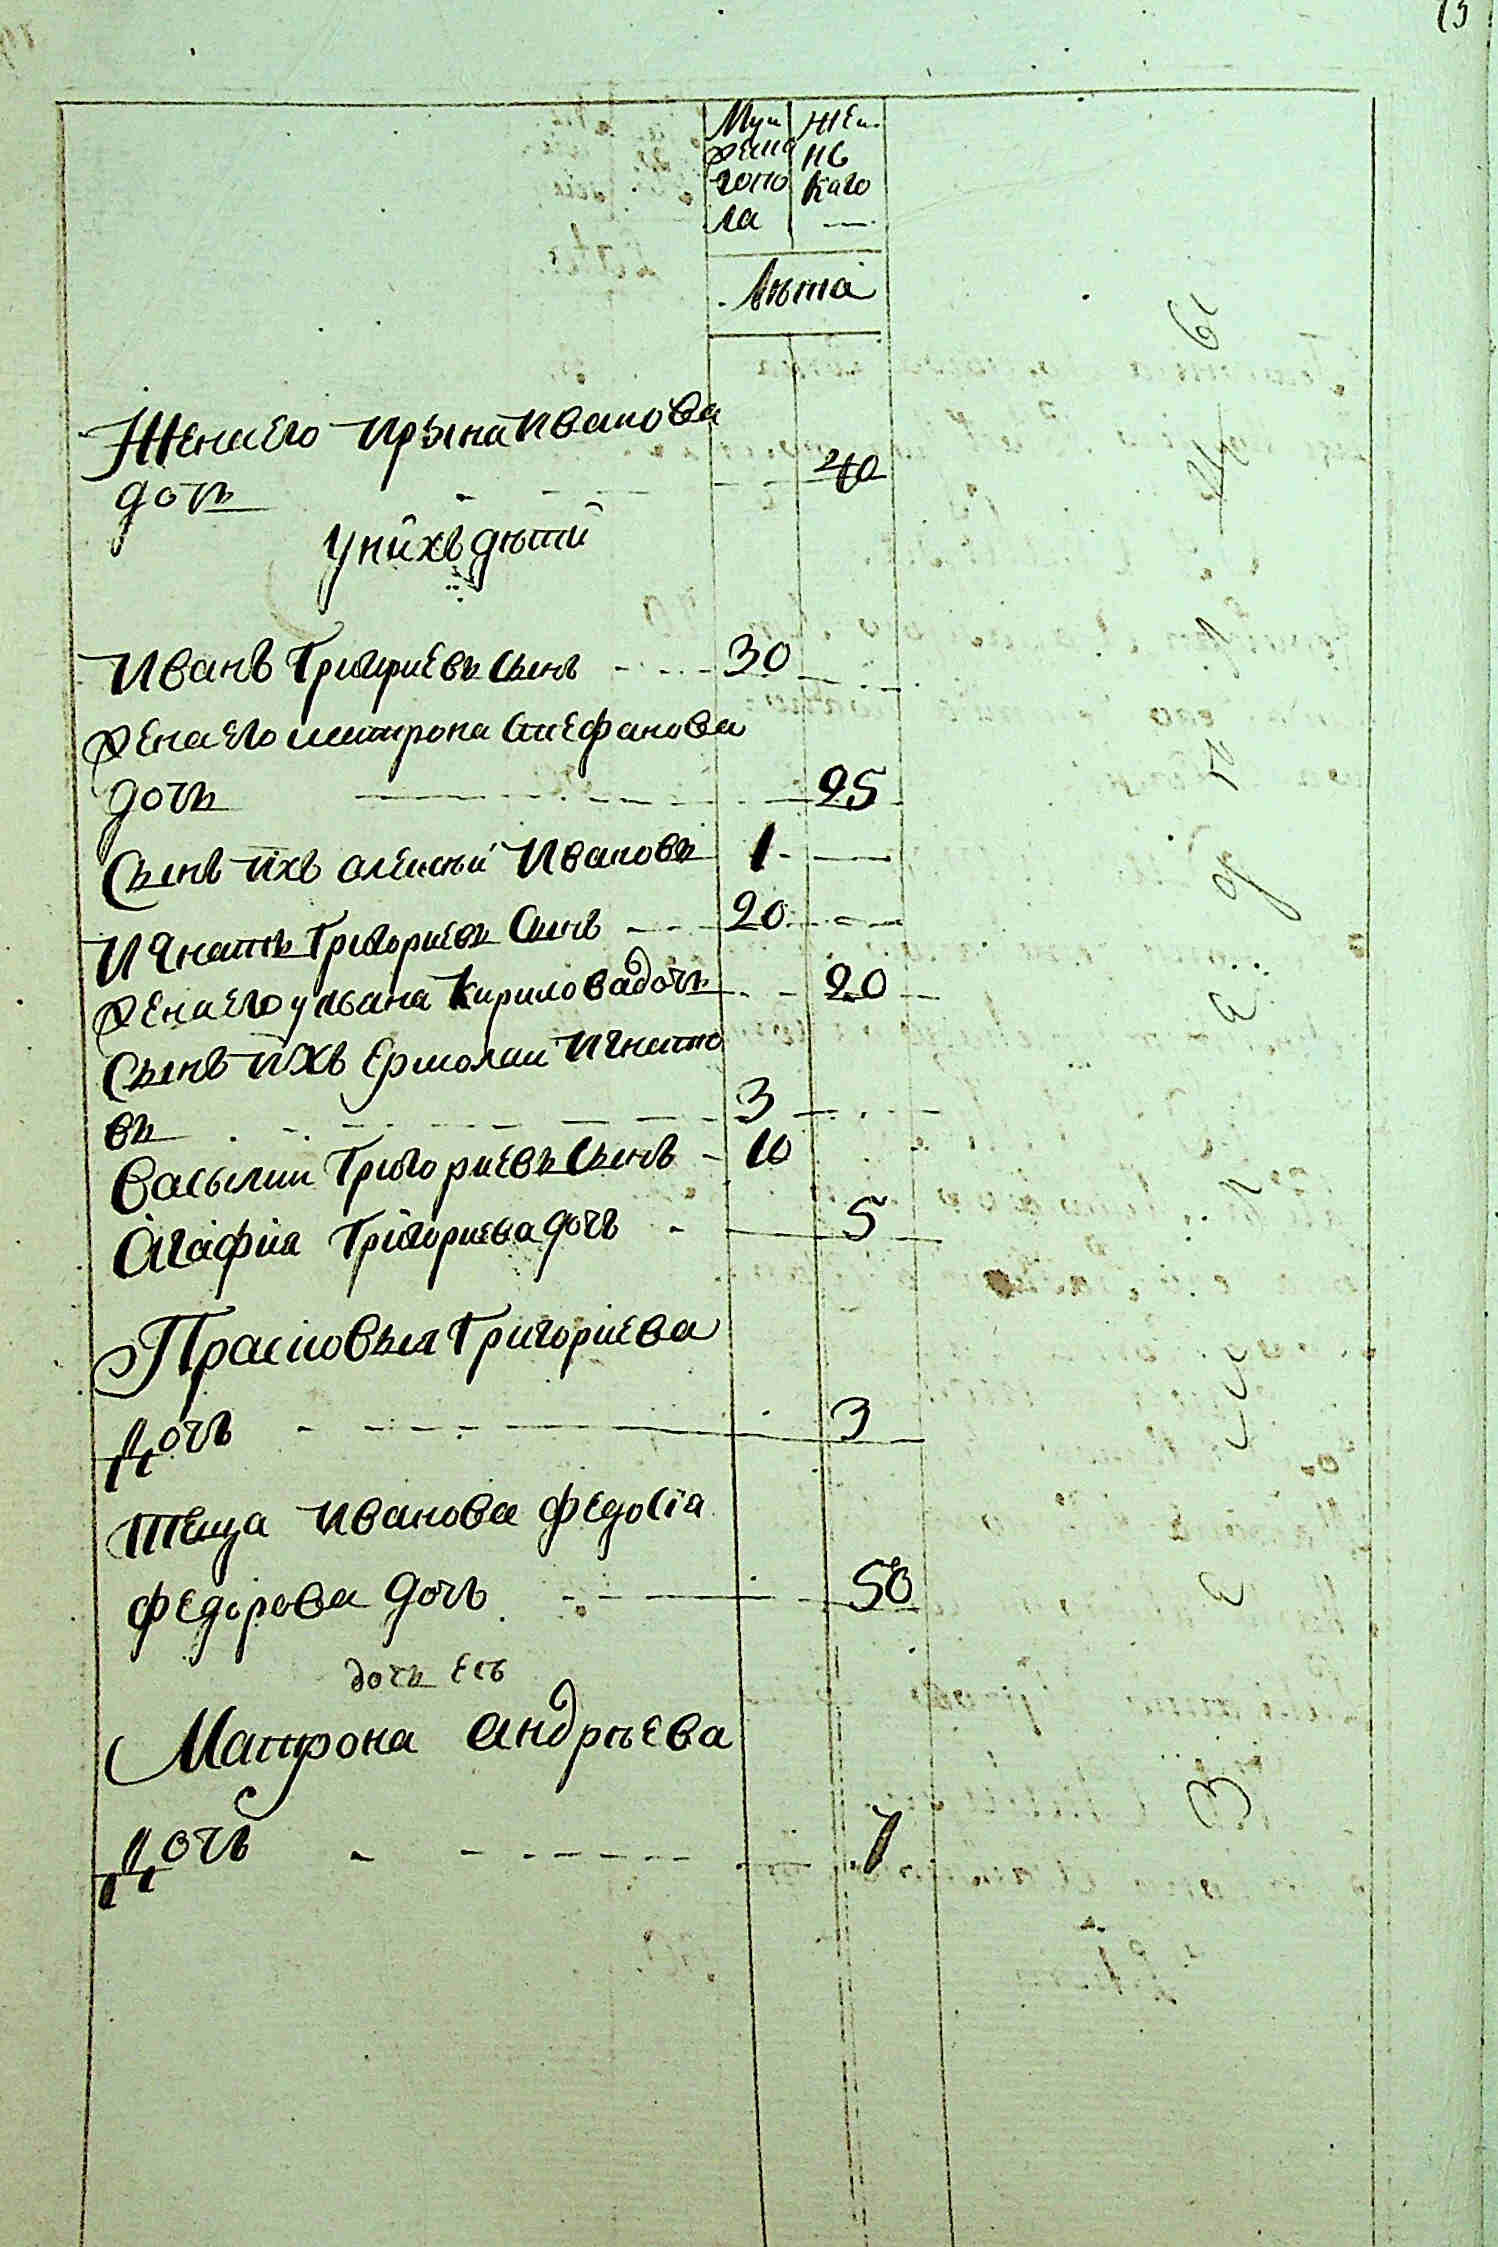 Мужескаго пола
Женскаго
Лѣта
Жена его Ирына Иванова
дочь 40
У нихъ дѣти
Иванъ Григориевъ сынъ 30
жена его матрона Стефанова
дочь 25
Сынъ ихъ алексѣй Ивановъ 1
Игнатъ Григориевъ Сынъ 20
жена его ульана Кирилова дочь 20
Сынъ ихъ Ермолаи Игнато
въ 3
Васылии Григориевъ Сынъ 10
Агафиа Григориева дочъ 5
Прасковья Григориева
Дочъ 3
Теща Иванова федосїа
федорова дочъ 50
дочь еѣ
Матрона андрѣева
Дочъ 7